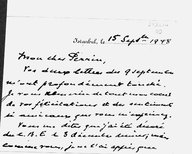 Istanbul, le 15 Septbre 1948
Mon cher Perrin,
Vos deux lettres du 9 septembre
m'ont profondément touché.
Je vous remercie de tout mon cœur
de vos félicitations et des sentiments
si amicaux que vous m'exprimez.
Vous me dites que j'ai été
de L. B. E. le 3 décembre dernier
comme vous, je l'ai appris par